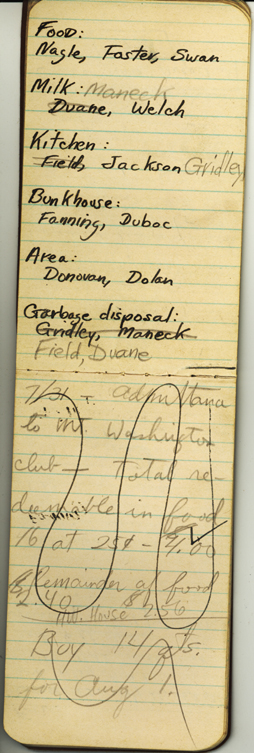 Food:
Nagle, Foster, Swan
Milk: Maneck
Duane, Welch
Kitchen:
Field, Jackson Gridley
Bunkhouse:
Fanning, Duboc
Area:
Donovan, Dolan
Garbage disposal:
Gridley, Maneck
Field, Duane
7/31 - Admittance
to Mt. Washington
club — Total re-
deemable in food
16 at 25¢ - 4.00
Remainder of food
2.40
House 256
Buy 14 qts.
for Aug 1.